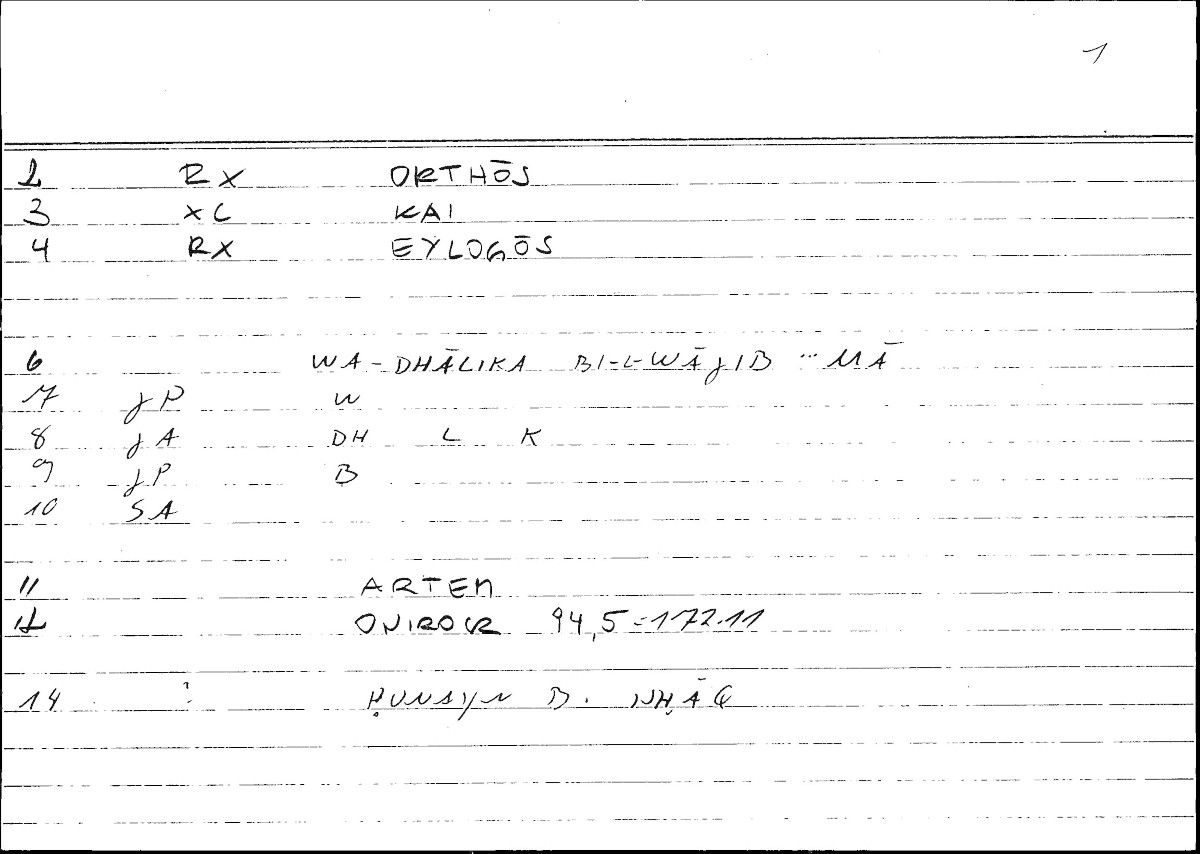 1
2 RX ORTHŌS
3 XC KAI
4 RX EYLOGŌS
6 WA-DHĀLIKA BI-L-WĀJIB ... MĀ
7 JP W
8 JA DH L K
9 JP B
10 SA
11 ARTEM
12 ONIROCR 94,5=172.11
14 : ḤUNAYN B. ISḤĀQ